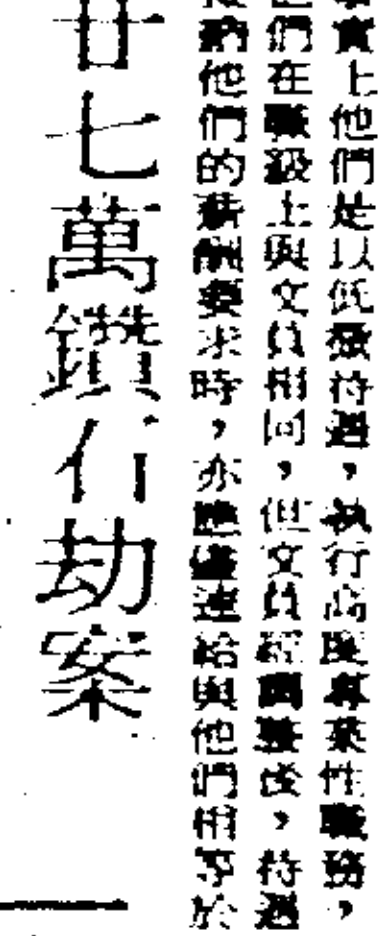 事實上他們是以低微待遇，執行高度專業性職務，
們在職級上與文員相同，但文員經調整後，待遇
納他們的薪酬要求時，亦應儘速給與他們相等於
廿七萬鑽行劫案